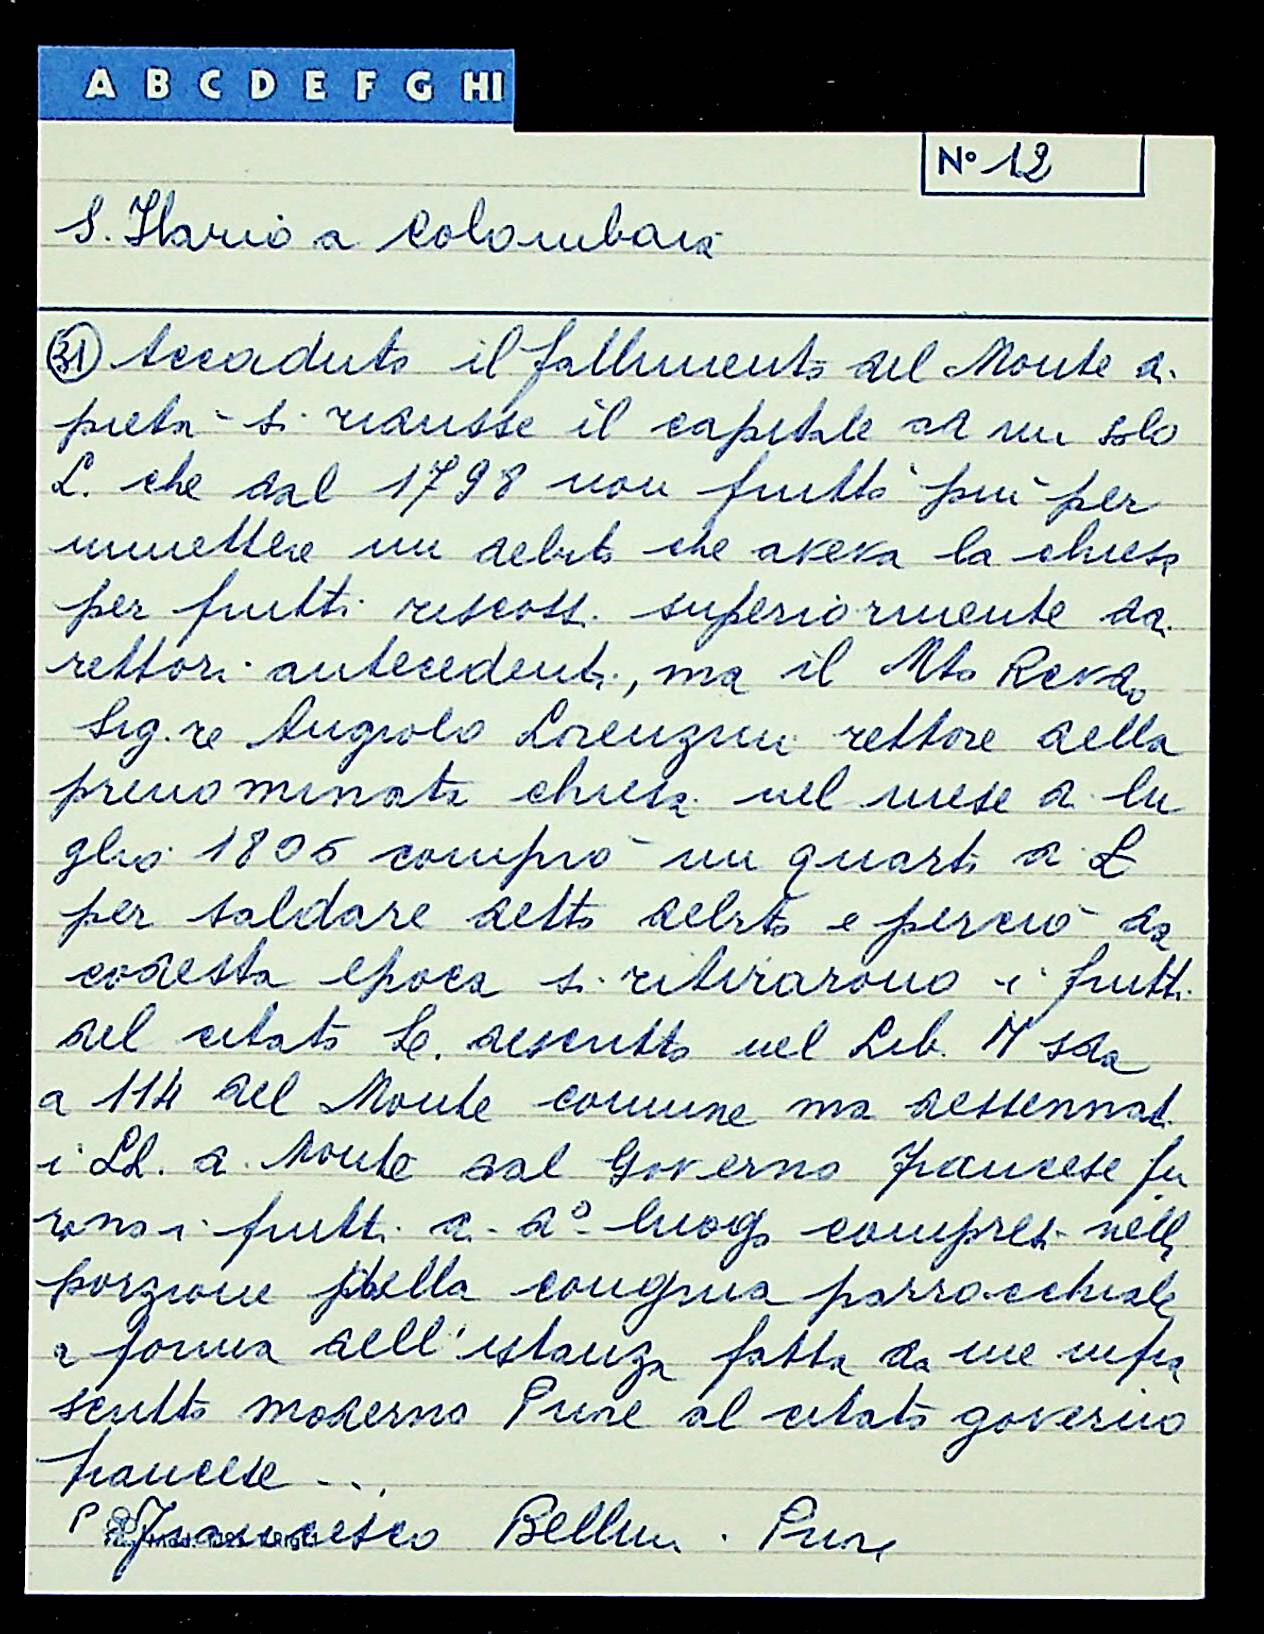 A B C D E F G HI
N° 12
S. Ilario a Colombaia
31 Accaduto il fallimento del Monte di
pietà si ridusse il capitale ad un solo
L. che dal 1798 non fruttò più per
rimettere un debito che aveva la chiesa
per frutti riscossi superiormente da
rettori antecedenti, ma il Mto Revdo
Sig.re Angiolo Lorenzini rettore della
prenominata chiesa nel mese di lu
glio 1806 comprò un quarto di L
per saldare detto debito e perciò da
codesta epoca si ritirarono i frutti
del citato L. descritto nel Lib. M sda
a 114 del Monte comune ma dessennati
i LL. di Monte dal Governo francese fu
rono i frutti di do luogo compresi nella
porzione della congrua parrocchiale
a forma dell'istanza fatta da me infra
scritto moderno Priore al citato governo
francese ...
P Francesco Bellini . Priore